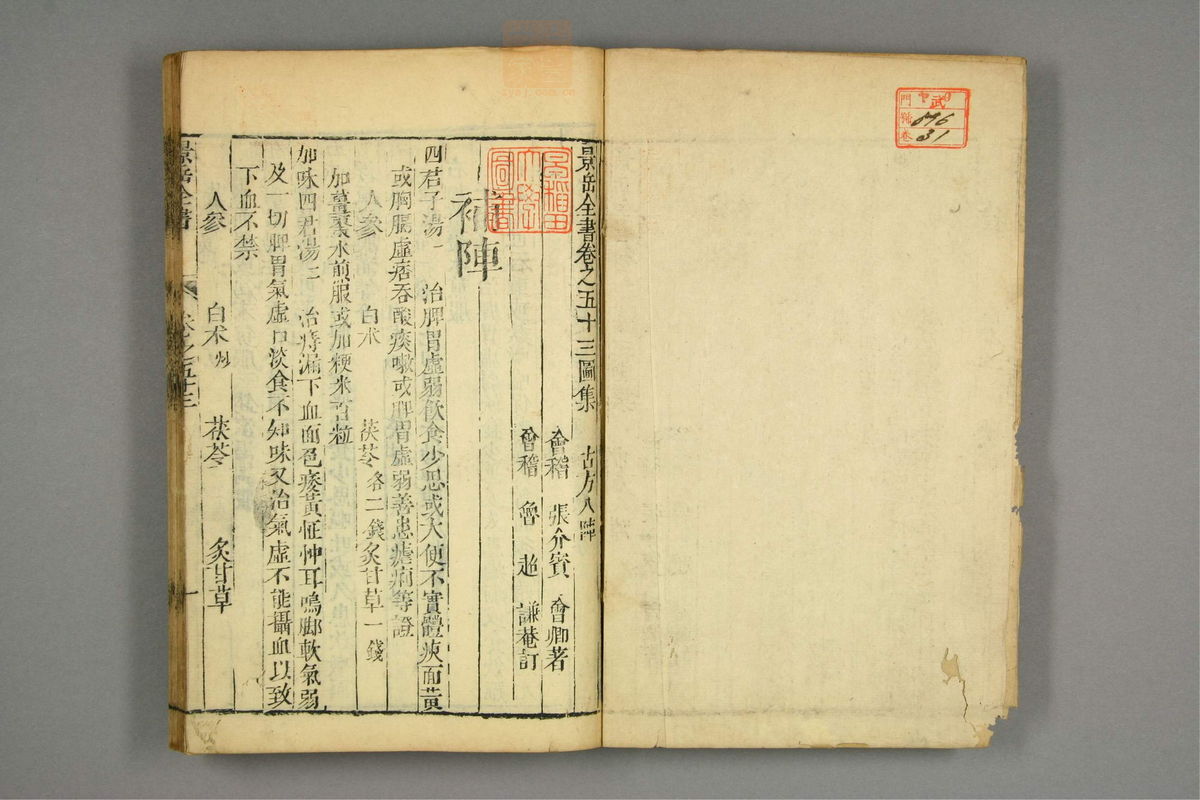 景岳全書卷之五十三圖集 古方八陣
會稽 張介賓 會卿著
會稽 魯超 謙菴訂
補陣
四君子湯一 治脾胃虛弱飲食少思或大便不實體瘦面黃
或胸膈虛痞吞酸痰嗽或脾胃虛弱善患瘧痢等證
人參 白朮 茯苓各二錢炙甘草一錢
加薑棗水煎服或加粳米百粒
加味四君湯二 治痔漏下血面色痿黃怔忡耳鳴脚軟氣弱
及一切脾胃氣虛口淡食不知味又治氣虛不能攝血以致
下血不禁
人參 白朮炒 茯苓 炙甘草
景岳全書 卷之五十三 一
早稻田大學圖書
門
號 896
卷 31